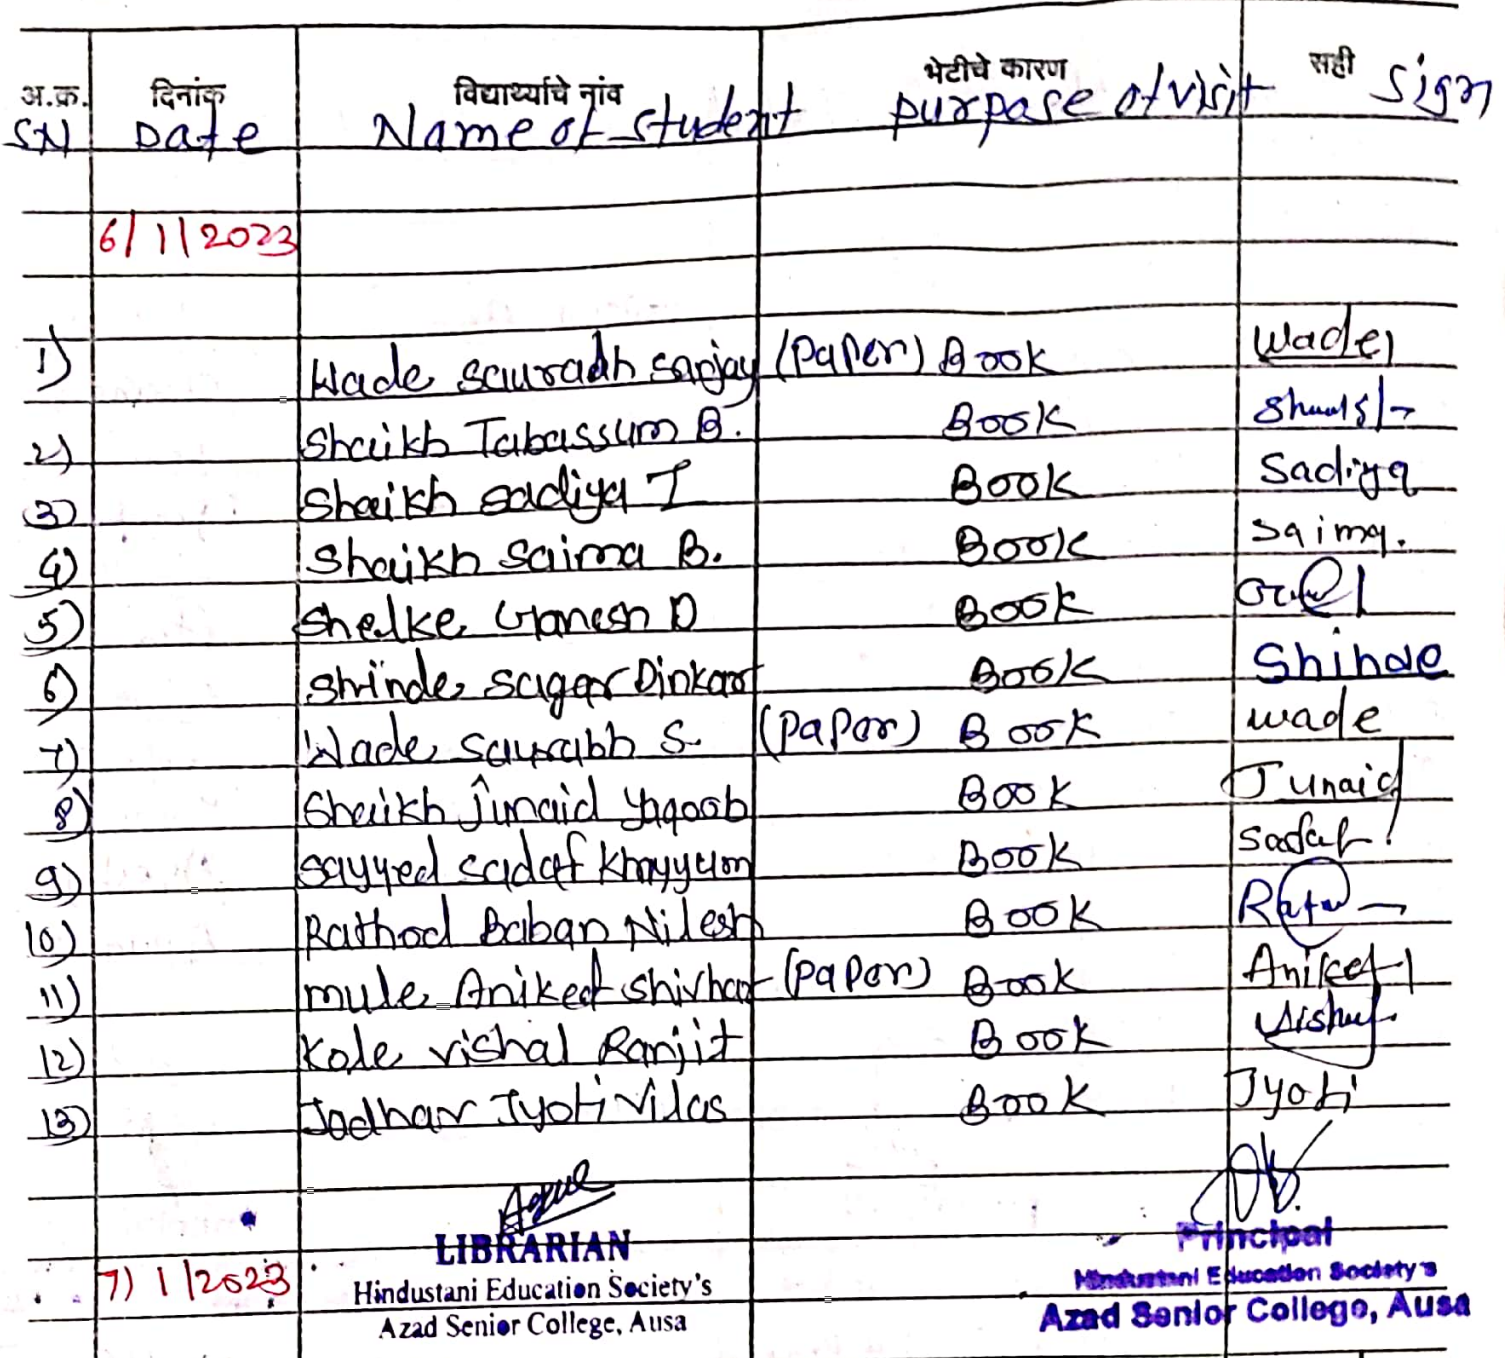 अ.क्र. दिनांक विद्यार्थ्याचे नांव भेटीचे कारण सही
SN Date Name of student purpase of visit Sign
6/1/2023
1) Wade sauradh sanjay (Paper) Book Wade
2) Shaikh Tabassum B. Book
3) Shaikh sadiya I Book Sadiya
4) Shaikh Saima B. Book Saima.
5) Shelke Ganesh D Book
6) Shinde sagar Dinkar Book Shinde
7) Wade Saurabh S. (Paper) Book wade
8) Shaikh junaid Yaqoob Book Junaid
9) Sayyed sadaf khayyum Book sadaf
10) Rathod Baban Nilesh Book
11) mule Aniket shivhar (Paper) Book Aniket
12) Kole vishal Ranjit Book
13) Jadhav Jyoti Vilas Book Jyoti
LIBRARIAN
Hindustani Education Society's
Azad Senior College, Ausa
Principal
Hindustani Education Society's
Azad Senior College, Ausa
7/1/2023